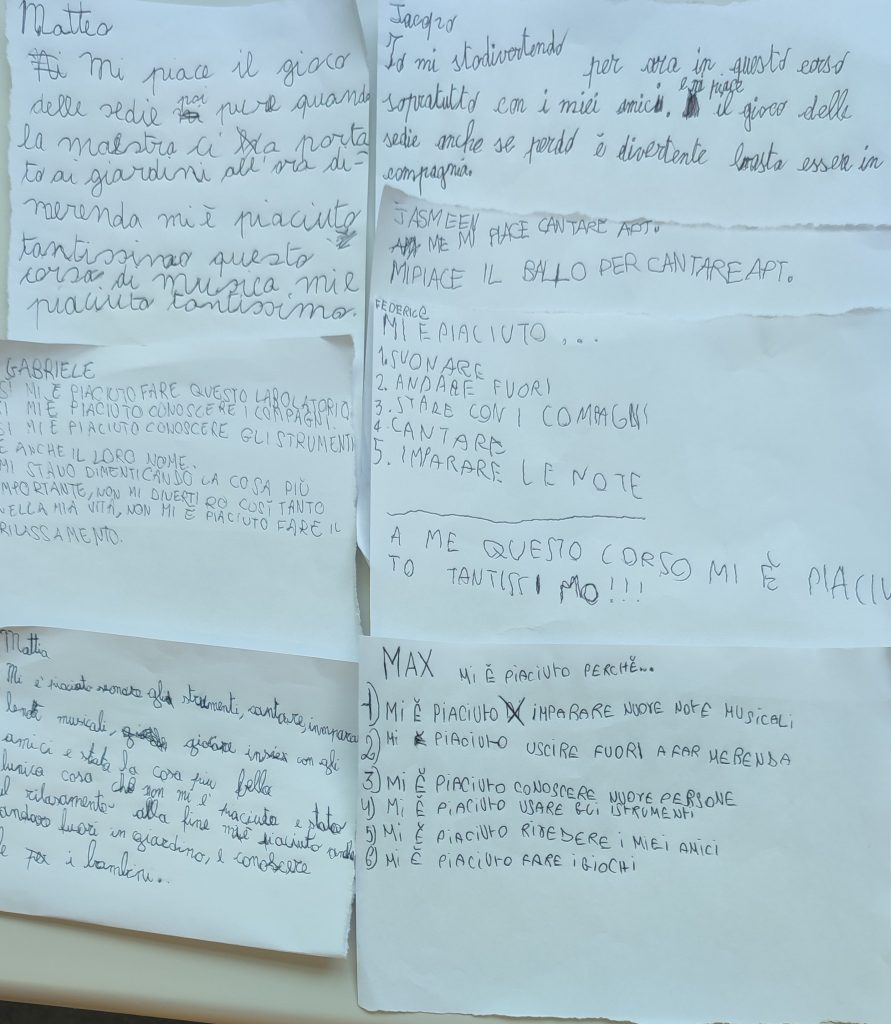 Matteo
mi piace il gioco
delle sedie poi pure quando
la maestra ci ha porta
to ai giardini all'ora di-
merenda mi è piaciuto
tantissimo questo
corso di musica mi è
piaciuto tantissimo.
Jacopo
Io mi stodivertendo per ora in questo corso
sopratutto con i miei amici. e mi piace il gioco delle
sedie anche se perdo è divertente basta essere in
compagnia.
JASMEEN
ME MI PIACE CANTARE APT.
MIPIACE IL BALLO PER CANTARE APT.
FEDERICO
MI È PIACIUTO...
1. SUONARE
2. ANDARE FUORI
3. STARE CON I COMPAGNI
4. CANTARE
5. IMPARARE LE NOTE
A ME QUESTO CORSO MI È PIACIU
TO TANTISSIMO!!!
GABRIELE
SI MI È PIACIUTO FARE QUESTO LABOLATORIO
SI MI È PIACIUTO CONOSCERE I COMPAGNI.
SI MI È PIACIUTO CONOSCERE GLI STRUMENTI
E ANCHE IL LORO NOME.
MI STAVO DIMENTICANDO LA COSA PIÙ
IMPORTANTE, NON MI DIVERTIRO COSÌ TANTO
NELLA MIA VITA, NON MI È PIACIUTO FARE IL
RILASSAMENTO.
Mattia
Mi è piaciuto suonare gli strumenti, cantare, inmpara
le musicali, giocare insiem con gli
amici e stata la cosa piu bella
lunica cosa che non mi è piaciuto e stato
il rilasamento alla fine mi è piaciuto anche
andare fuori in giardino, e conoscere
i bambini...
MAX MI È PIACIUTO PERCHÈ...
1) MI È PIACIUTO IMPARARE NUOVE NOTE MUSICALI
2) MI È PIACIUTO USCIRE FUORI A FAR MERENDA
3) MI È PIACIUTO CONOSCERE NUOVE PERSONE
4) MI È PIACIUTO USARE GLI ISTRUMENTI
5) MI È PIACIUTO RIVEDERE I MIEI AMICI
6) MI È PIACIUTO FARE I GIOCHI